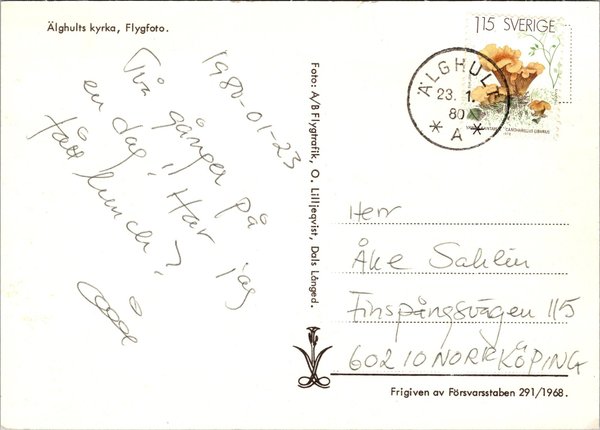 Älghults kyrka, Flygfoto.
1980-01-23
Två gånger på
en dag! Har jag
lunch?
Foto: A/B Flygtrafik, O. Lilljeqvist, Dals Långed.
115 SVERIGE
CANTHARELLUS CIBARIUS
ÄLGHULT
23. 1.
80
* A *
Herr
Åke Sahlin
Finspångsvägen 115
602 10 NORRKÖPING
Frigiven av Försvarsstaben 291/1968.